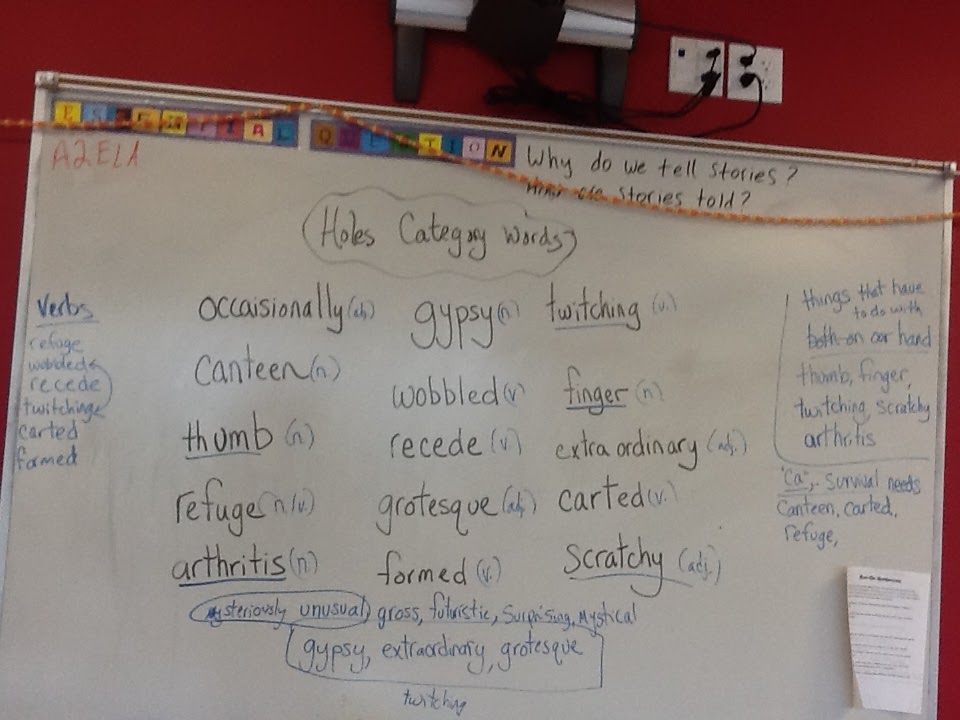 ESSENTIAL QUESTION
Why do we tell stories?
A2ELA
How are stories told?
Holes Category Words
Verbs
refuge
wobbled
recede
twitching
carted
formed
occaisionally (adj.) gypsy (n) twitching (v.)
canteen (n) wobbled (v) finger (n)
thumb (n) recede (v.) extraordinary (adj.)
refuge (n/v.) grotesque (adj) carted (v.)
arthritis (n.) formed (v.) Scratchy (adj.)
mysteriously unusual, gross, futuristic, Surprising, Mystical
gypsy, extraordinary, grotesque
twitching
things that have
to do with
both on our hand
thumb, finger,
twitching, scratchy
arthritis
"Ca", - Survival needs
Canteen, carted,
refuge,